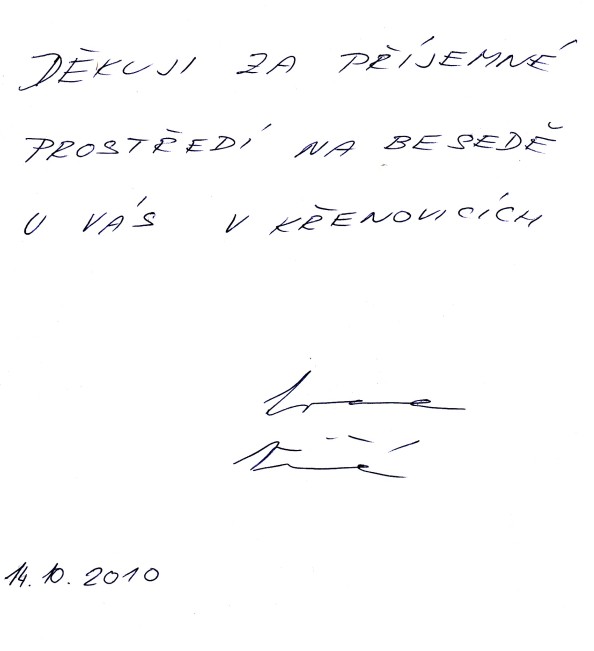 DĚKUJI ZA PŘÍJEMNÉ
PROSTŘEDÍ NA BESEDĚ
U VÁS V KŘENOVICÍCH
14. 10. 2010